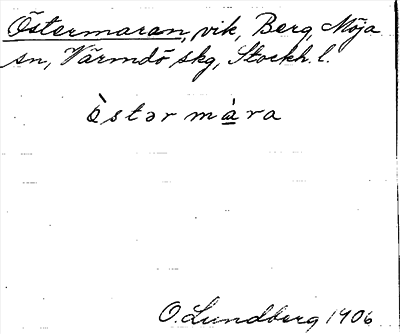 Östermaran, vik, Berg, Möja
sn, Värmdö skg, Stockh. l.
ö̀stər mà̲ra
O. Lundberg 1906